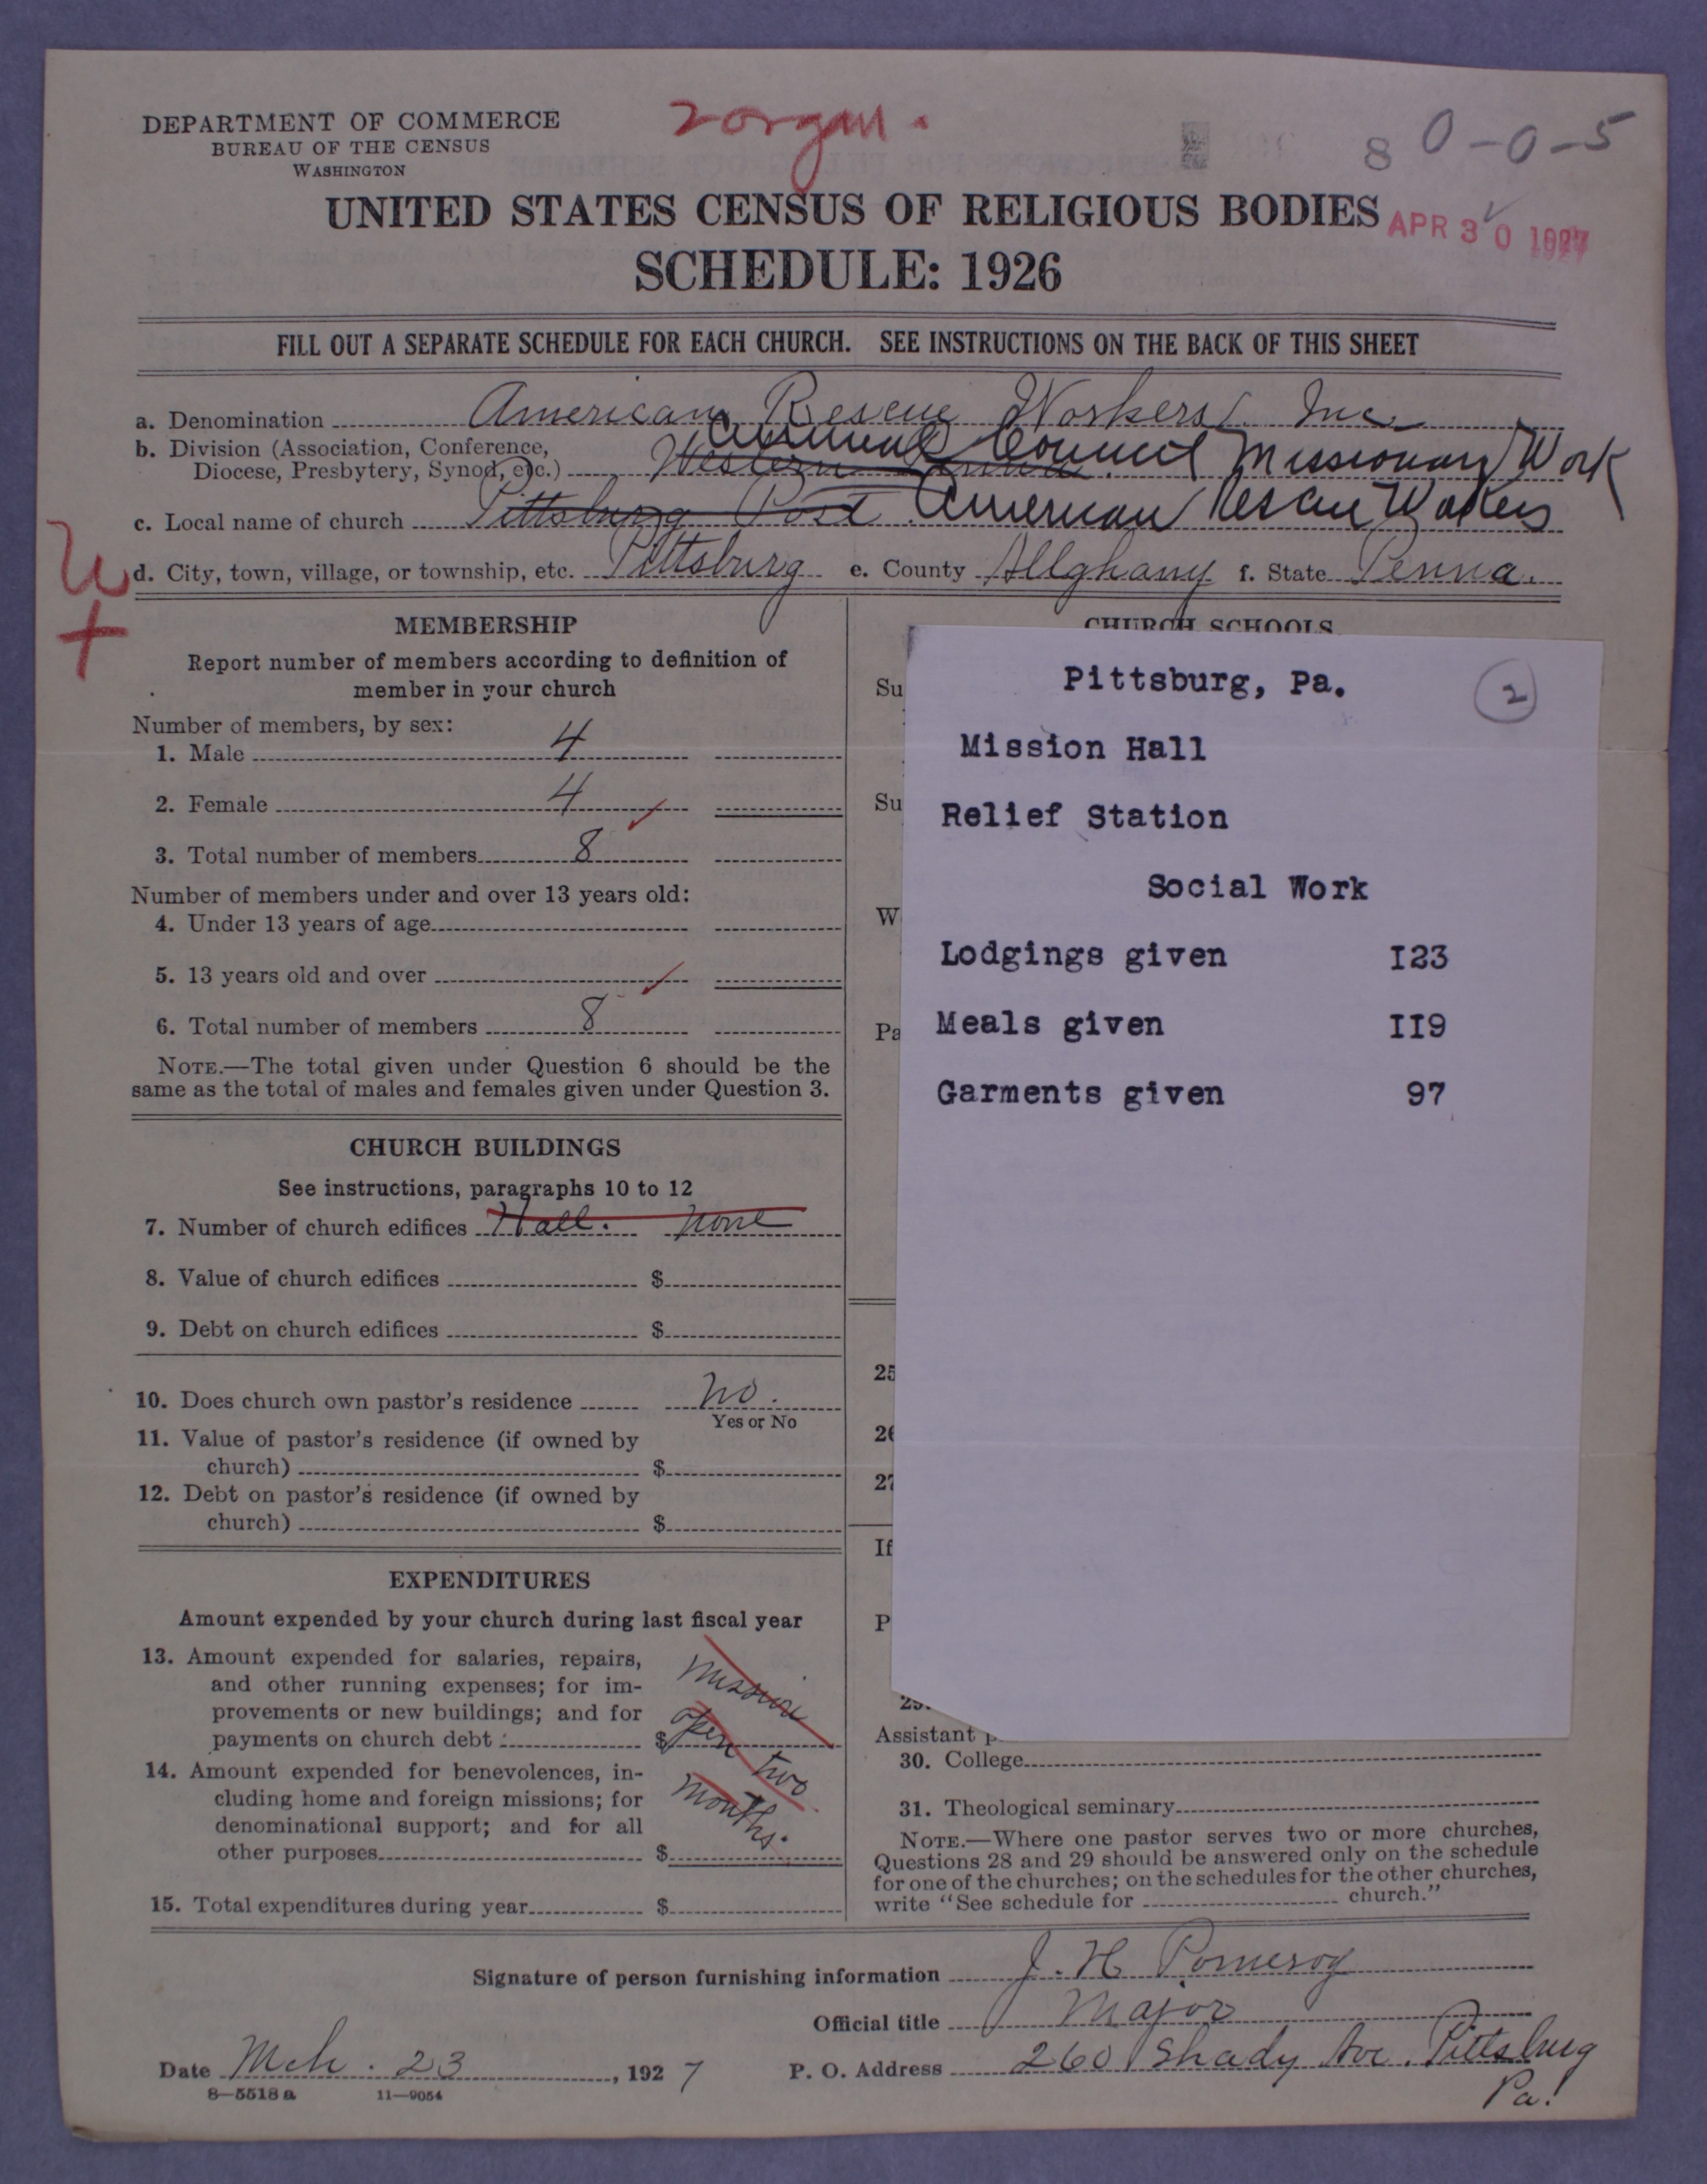 DEPARTMENT OF COMMERCE
BUREAU OF THE CENSUS
WASHINGTON
2 organ.
8 0-0-5
UNITED STATES CENSUS OF RELIGIOUS BODIES
APR 30 1927
SCHEDULE: 1926
FILL OUT A SEPARATE SCHEDULE FOR EACH CHURCH. SEE INSTRUCTIONS ON THE BACK OF THIS SHEET
a. Denomination American Rescue Workers, Inc.
b. Division (Association, Conference,
Diocese, Presbytery, Synod, etc.) Western Penna. Council Missionary Work
c. Local name of church Pittsburg Post American Rescue Workers
d. City, town, village, or township, etc. Pittsburg e. County Allghany f. State Penna.
U
+
MEMBERSHIP
Report number of members according to definition of
member in your church
Number of members, by sex:
1. Male 4
2. Female 4
3. Total number of members 8
Number of members under and over 13 years old:
4. Under 13 years of age
5. 13 years old and over
6. Total number of members 8
NOTE.—The total given under Question 6 should be the
same as the total of males and females given under Question 3.
CHURCH BUILDINGS
See instructions, paragraphs 10 to 12
7. Number of church edifices Hall. none
8. Value of church edifices $
9. Debt on church edifices $
10. Does church own pastor's residence No.
Yes or No
11. Value of pastor's residence (if owned by
church) $
12. Debt on pastor's residence (if owned by
church) $
EXPENDITURES
Amount expended by your church during last fiscal year
13. Amount expended for salaries, repairs,
and other running expenses; for im-
provements or new buildings; and for
payments on church debt $
Mission
open two
months.
14. Amount expended for benevolences, in-
cluding home and foreign missions; for
denominational support; and for all
other purposes $
15. Total expenditures during year $
CHURCH SCHOOLS
Su
Su
W
Pa
25
26
27
If
P
29.
Pittsburg, Pa. 2
Mission Hall
Relief Station
Social Work
Lodgings given I23
Meals given II9
Garments given 97
Assistant p
30. College
31. Theological seminary
NOTE.—Where one pastor serves two or more churches,
Questions 28 and 29 should be answered only on the schedule
for one of the churches; on the schedules for the other churches,
write "See schedule for church."
Signature of person furnishing information J. H Pomeroy
Official title Major
Date Mch. 23, 1927 P. O. Address 260 Shady Ave. Pittsburg
Pa.
8—5518 a 11—9054